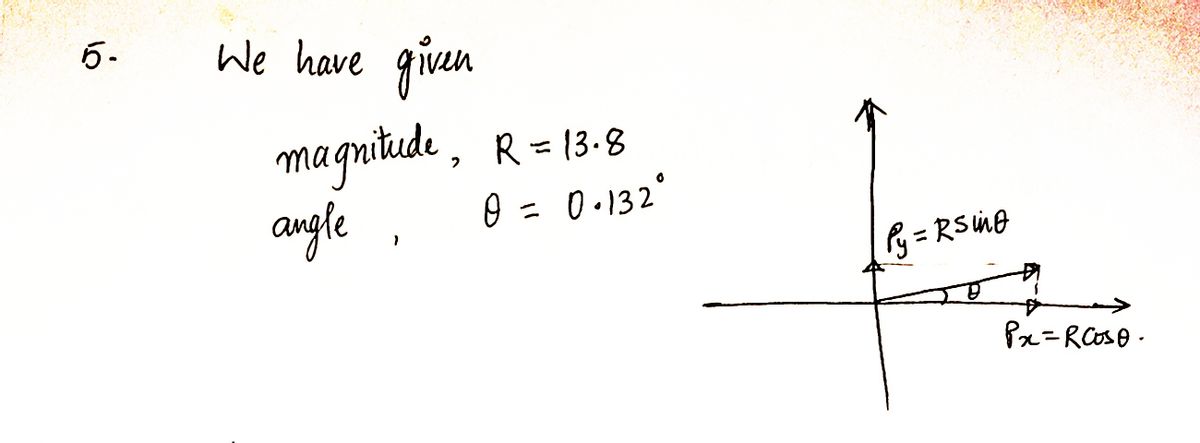 5. We have given
magnitude, R = 13.8
angle, θ = 0.132°
Py = RSinθ
θ
Px = RCosθ.